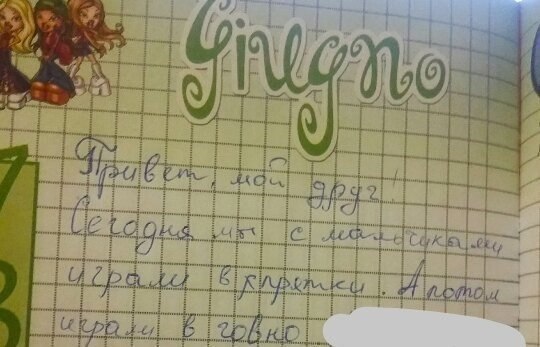 Giugno
7
Привет, мой друг!
Сегодня мы с мальчуками
играли в хпрятки. А потом
8
играли в говно